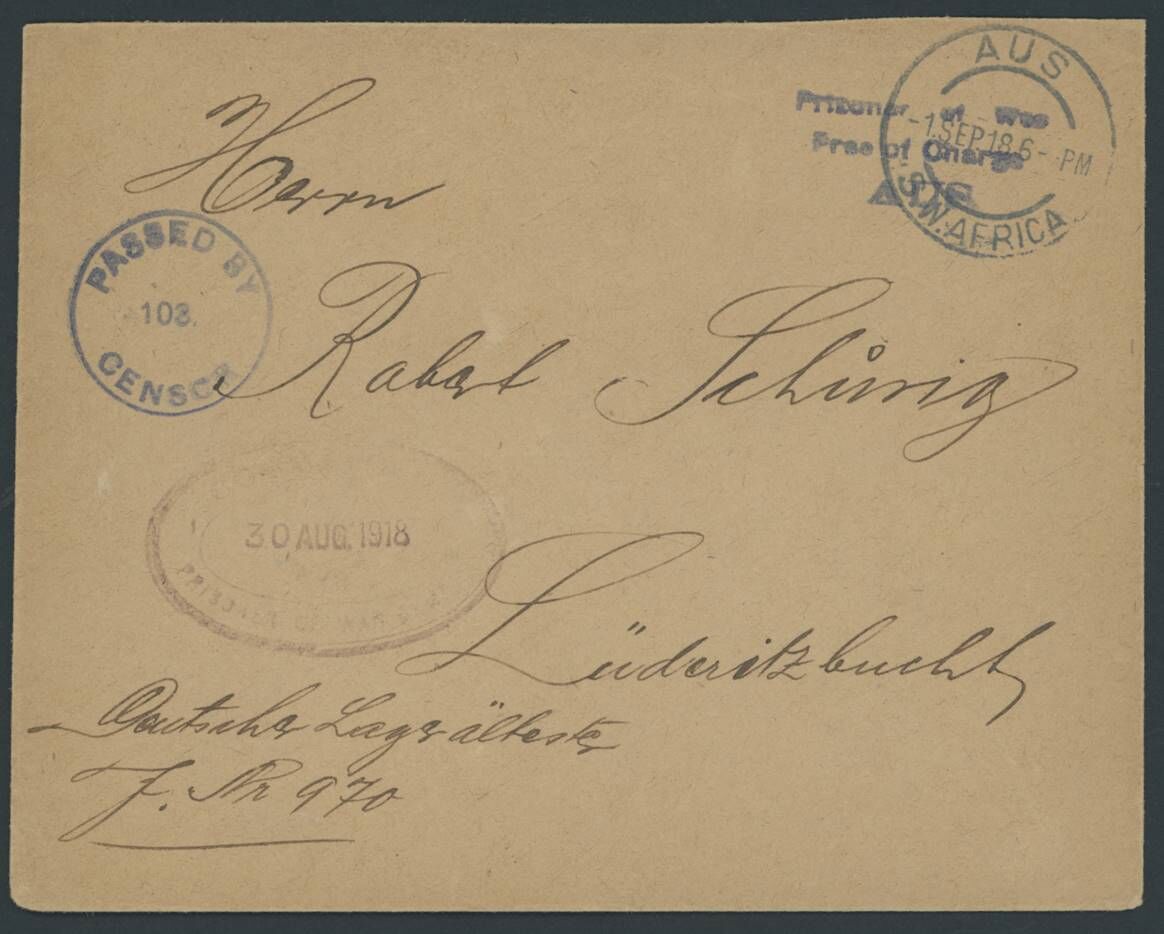 AUS
-1.SEP.18.6- PM
S.W.AFRICA
Prisoner of War
Free of Charge
AUS
Herrn
PASSED BY
103.
CENSOR
Robert Schürig
30 AUG. 1918
PRISONER OF WAR
Lüderitzbucht
Deutscher Lagerältester
J. Nr 970